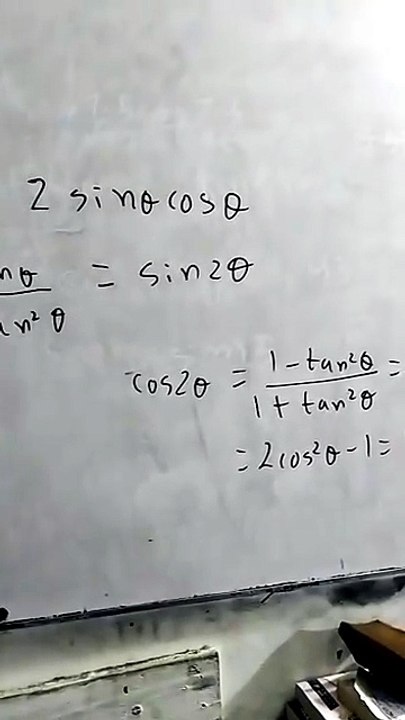 2 sinθ cosθ
nθ / n² θ = sin2θ
cos2θ = 1 - tan²θ / 1 + tan²θ =
= 2cos²θ - 1 =